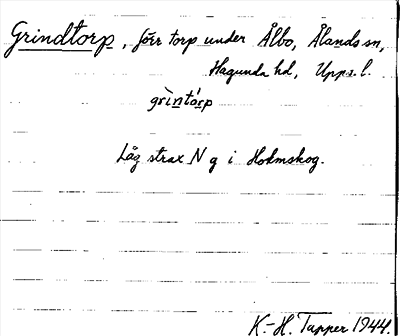 Grindtorp, förr torp under Ålbo, Ålands sn,
Hagunda hd, Upps. l.
grìntárp
Låg strax N g i Holmskog.
K.-H. Tapper 1944.